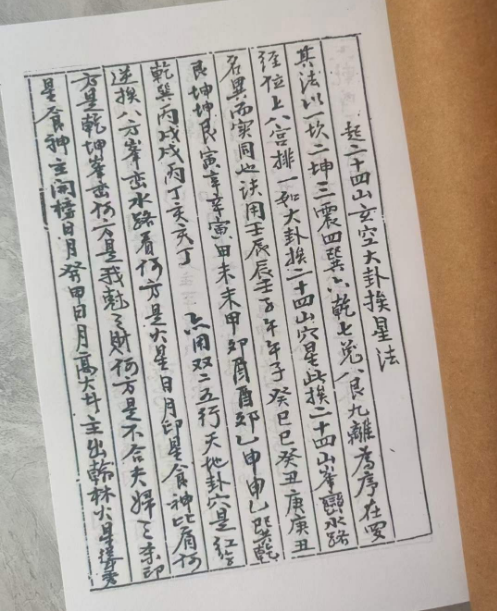 起二十四山玄空大卦挨星法
其法以一坎二坤三震四巽六乾七兌八艮九離為序在罗
經位上八宮排一如大卦挨二十四山穴星此挨二十四山峯巒水路
名異而实同也法用壬辰辰壬子午午子癸巳巳癸丑庚庚丑
艮坤坤艮寅辛辛寅甲未未甲卯酉酉卯乙申申乙巽乾
乾巽丙戌戌丙丁亥亥丁 亦用双二五行天地卦穴是红字
逆挨八方峯峦水路看何方是火星日月印星食神比肩何
方是乾坤峯峦何方是我尅之財何方是不合夫婦之
是食神主開檯日月癸甲日月高大斗主出翰林火星